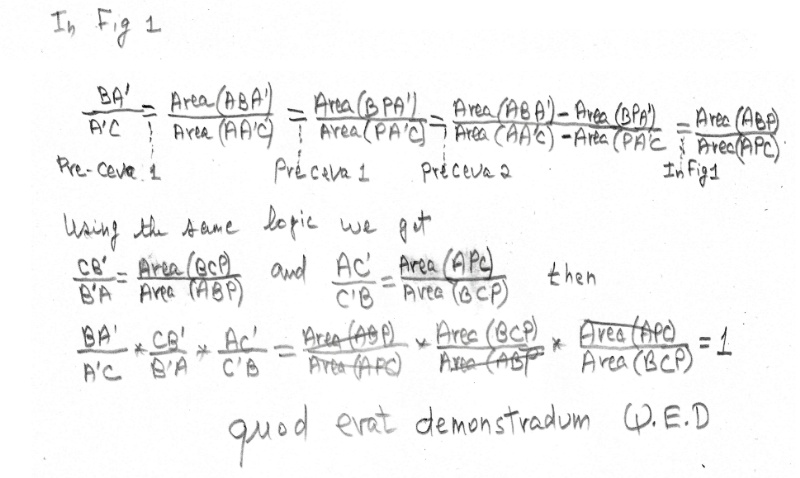 In Fig 1
BA'/A'C = Area (ABA')/Area (AA'C) = Area (BPA')/Area (PA'C) = Area (ABA') - Area (BPA')/Area (AA'C) - Area (PA'C = Area (ABP)/Area(APC)
Pre-Ceva 1 Pré ceva 1 Pré ceva 2 In Fig1
Using the same logic we get
CB'/B'A = Area (BCP)/Area (ABP) and AC'/C'B = Area (APC)/Area (BCP) then
BA'/A'C * CB'/B'A * AC'/C'B = Area (ABP)/Area (APC) * Area (BCP)/Area (ABP * Area (APC)/Area (BCP) = 1
quod erat demonstradum Q.E.D